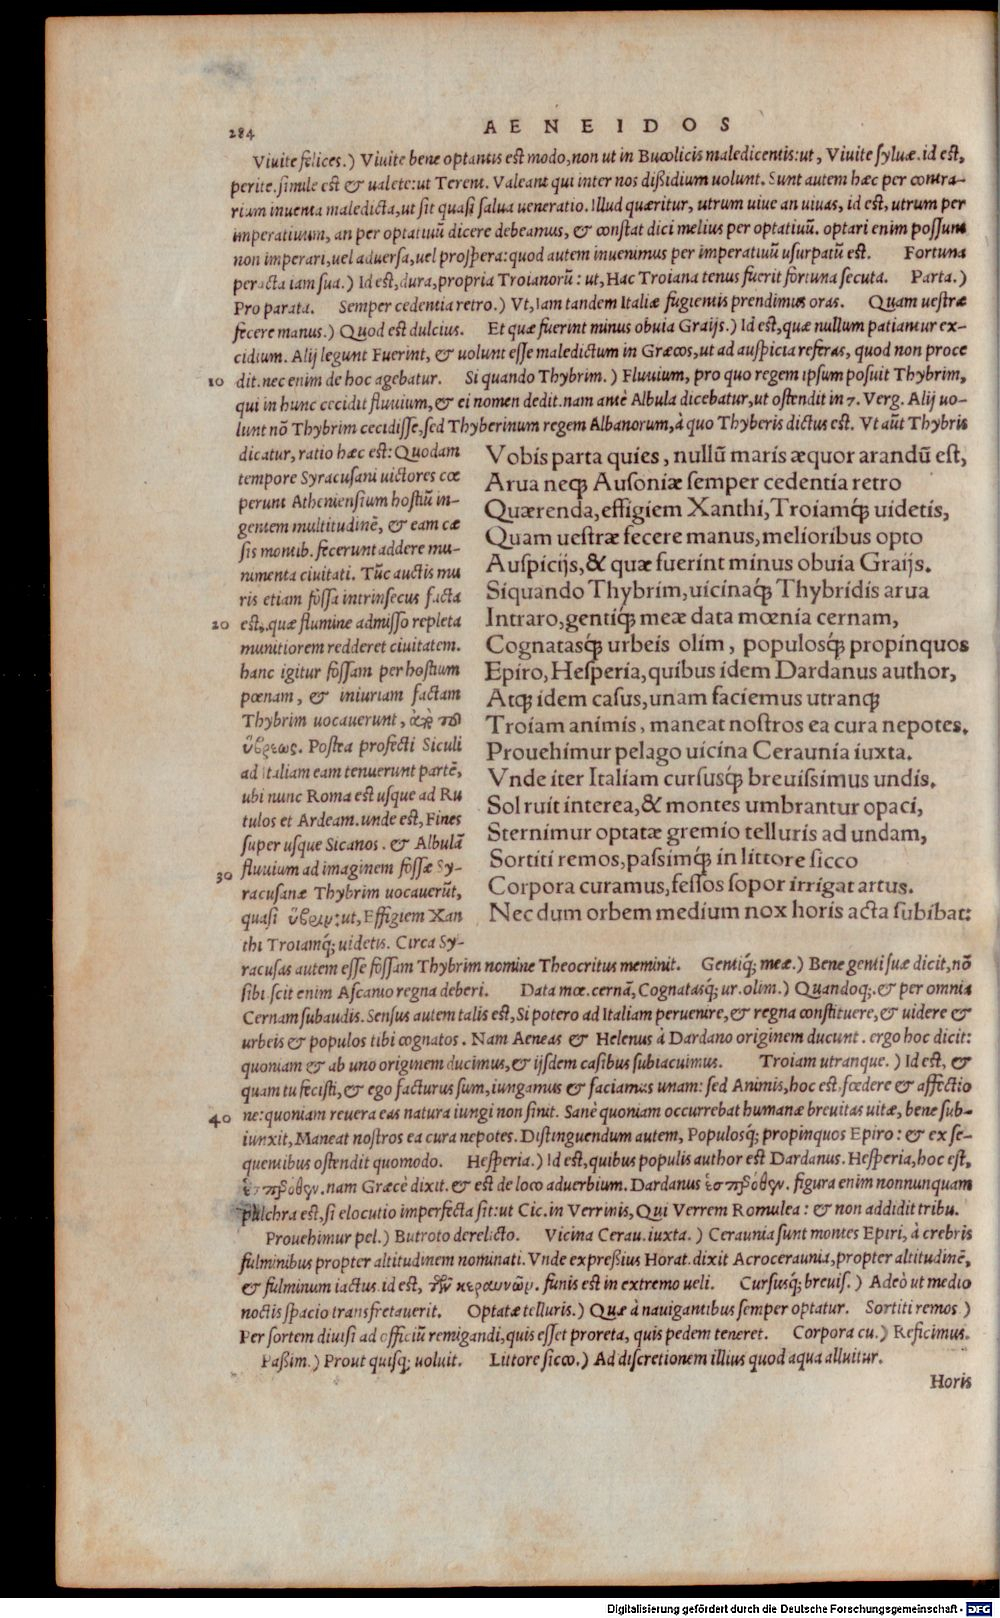 284 AENEIDOS
Viuite felices.) Viuite bene optantis est modo, non ut in Bucolicis maledicentis: ut, Viuite syluæ. id est,
perite. simile est & ualete: ut Terent. Valeant qui inter nos dißidium uolunt. Sunt autem hæc per contra-
riam inuenta maledicta, ut sit quasi salua ueneratio. Illud quæritur, utrum uiue an uiuas, id est, utrum per
imperatiuum, an per optatiuũ dicere debeamus, & constat dici melius per optatiuũ. optari enim possunt
non imperari, uel aduersa, uel prospera: quod autem inuenimus per imperatiuũ usurpatũ est. Fortuna
peracta iam sua.) Id est, dura, propria Troianorũ: ut, Hac Troiana tenus fuerit fortuna secuta. Parta.)
Pro parata. Semper cedentia retro.) Vt, Iam tandem Italiæ fugientis prendimus oras. Quam uestræ
fecere manus.) Quod est dulcius. Et quæ fuerint minus obuia Graijs.) Id est, quæ nullum patiantur ex-
cidium. Alij legunt Fuerint, & uolunt esse maledictum in Græcos, ut ad auspicia referas, quod non proce
10 dit. nec enim de hoc agebatur. Si quando Thybrim.) Fluuium, pro quo regem ipsum posuit Thybrim,
qui in hunc cecidit fluuium, & ei nomen dedit. nam antè Albula dicebatur, ut ostendit in 7. Verg. Alij uo-
lunt nõ Thybrim cecidisse, sed Thyberinum regem Albanorum, à quo Thyberis dictus est. Vt aũt Thybris
dicatur, ratio hæc est: Quodam
tempore Syracusani uictores cœ
perunt Atheniensium hostiũ in-
gentem multitudinẽ, & eam cæ
sis montib. fecerunt addere mu-
nimenta ciuitati. Tũc auctis mu
ris etiam fossa intrinsecus facta
20 est, quæ flumine admisso repleta
munitiorem redderet ciuitatem.
hanc igitur fossam per hostium
pœnam, & iniuriam factam
Thybrim uocauerunt, ἀπὸ τοῦ
ὕβρεως. Postea profecti Siculi
ad Italiam eam tenuerunt partẽ,
ubi nunc Roma est usque ad Ru
tulos et Ardeam. unde est, Fines
super usque Sicanos. & Albulã
30 fluuium ad imaginem fossæ Sy-
racusanæ Thybrim uocauerũt,
quasi ὕβριν: ut, Effigiem Xan
thi Troiamq́; uidetis. Circa Sy-
Vobis parta quies, nullũ maris æquor arandũ est,
Arua neq; Ausoniæ semper cedentia retro
Quærenda, effigiem Xanthi, Troiamq́; uidetis,
Quam uestræ fecere manus, melioribus opto
Auspicijs, & quæ fuerint minus obuia Graijs.
Siquando Thybrim, uicinaq́; Thybridis arua
Intraro, gentiq́; meæ data mœnia cernam,
Cognatasq́; urbeis olim, populosq́; propinquos
Epiro, Hesperia, quibus idem Dardanus author,
Atq; idem casus, unam faciemus utranq;
Troiam animis, maneat nostros ea cura nepotes.
Prouehimur pelago uicina Ceraunia iuxta.
Vnde iter Italiam cursusq́; breuissimus undis.
Sol ruit interea, & montes umbrantur opaci,
Sternimur optatæ gremio telluris ad undam,
Sortiti remos, passimq́; in littore sicco
Corpora curamus, fessos sopor irrigat artus.
Nec dum orbem medium nox horis acta subibat:
racusas autem esse fossam Thybrim nomine Theocritus meminit. Gentiq́; meæ.) Bene genti suæ dicit, nõ
sibi scit enim Ascanio regna deberi. Data mœ. cernã, Cognatasq́; ur. olim.) Quandoq;. & per omnia
Cernam subaudis. Sensus autem talis est, Si potero ad Italiam peruenire, & regna constituere, & uidere &
urbeis & populos tibi cognatos. Nam Aeneas & Helenus à Dardano originem ducunt. ergo hoc dicit:
quoniam & ab uno originem ducimus, & ijsdem casibus subiacuimus. Troiam utranque.) Id est, &
quam tu fecisti, & ego facturus sum, iungamus & faciamus unam: sed Animis, hoc est. fœdere & affectio
40 ne: quoniam reuera eas natura iungi non sinit. Sanè quoniam occurrebat humanæ breuitas uitæ, bene sub-
iunxit, Maneat nostros ea cura nepotes. Distinguendum autem, Populosq́; propinquos Epiro: & ex se-
quentibus ostendit quomodo. Hesperia.) Id est, quibus populis author est Dardanus. Hesperia, hoc est,
ἑσπερόθεν. nam Græcè dixit. & est de loco aduerbium. Dardanus ἑσπερόθεν. figura enim nonnunquam
pulchra est, si elocutio imperfecta sit: ut Cic. in Verrinis, Qui Verrem Romulea: & non addidit tribu.
Prouehimur pel.) Butroto derelicto. Vicina Cerau. iuxta.) Ceraunia sunt montes Epiri, à crebris
fulminibus propter altitudinem nominati. Vnde expreßius Horat. dixit Acroceraunia, propter altitudinẽ,
& fulminum iactus. id est, τῶν κεραυνῶν. funis est in extremo ueli. Cursusq́; breuis.) Adeò ut medio
noctis spacio transfretauerit. Optatæ telluris.) Quæ à nauigantibus semper optatur. Sortiti remos)
Per sortem diuisi ad officiũ remigandi, quis esset proreta, quis pedem teneret. Corpora cu.) Reficimus.
Paßim.) Prout quisq; uoluit. Littore sicco.) Ad discretionem illius quod aqua alluitur.
Horis
Digitalisierung gefördert durch die Deutsche Forschungsgemeinschaft - DFG